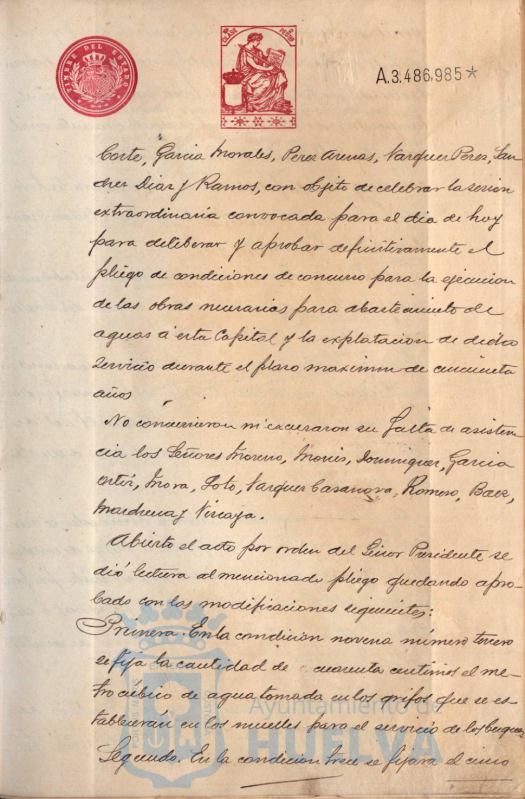 TIMBRE DEL ESTADO
A.3.486,985*
Corte, Garcia Morales, Perez Arenas, Vazquez Perez, San
chez Diaz y Ramos, con objeto de celebrar la sesion
extraordinaria convocada para el dia de hoy
para deliberar y aprobar definitivamente el
pliego de condiciones de concurso para la ejecucion
de las obras necesarias para abastecimiento de
aguas á esta Capital y la explotacion de dicho
servicio durante el plazo maximun de cincuenta
años
No concurrieron ni excusaron su falta de asisten
cia los Señores Moreno, Monis, Dominguez, Garcia
Ortiz, Mora, Soto, Vazquez Casanova, Romero, Baez,
Maduena y Vizcaya.
Abierto el acto por orden del Señor Presidente se
dió lectura al mencionado pliego quedando apro-
bado con las modificaciones siguientes:
Primera. En la condicion novena número tercero
se fija la cantidad de cuarenta centimos el me-
tro cubico de agua tomada en los grifos que se es-
tablecerán en los muelles para el servicio de los buques.
Segunda. En la condicion trece se fijara el cinco
Ayuntamiento de
HUELVA